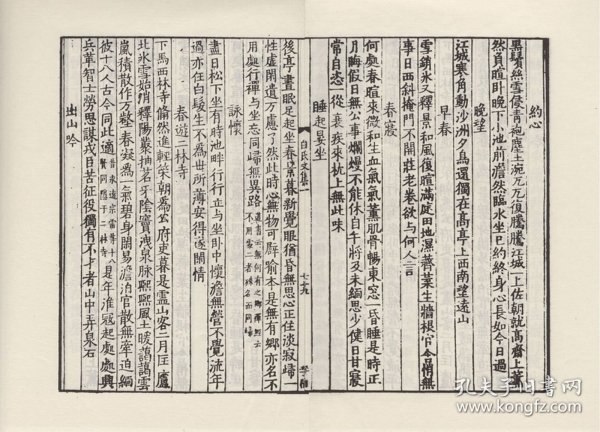 約心
黑鬢絲雪侵青袍塵土涴兀兀復騰騰江城一上佐朝就高齋上薰
然負暄卧晚下小池前澹然臨水坐已約終身心長如今日過
晚望
江城寒角動沙洲夕鳥還獨在高亭上西南望遠山
早春
雪銷冰又釋景和風復暄滿庭田地濕薺葉生牆根官舍悄無
事日西斜掩門不開莊老卷欲與何人言
春寢
何處春暄來微和生血氣氣薰肌骨暢東窓一昏睡是時正
月晦假日無公事爛熳不能休自午將及未緬思少健日甘寢
常自恣一從衰疾來枕上無此味
睡起晏坐
白氏文集一
七十九
後亭晝眠足起坐春景暮新覺眼猶昏無思心正住淡寂歸一
性虛閑遺万慮了然此時心無物可譬喻本是無有鄉亦名不
用處行禪与坐忘同歸無異路道書云無何有之鄉禪經云不用處二者殊名而同歸
詠懷
盡日松下坐有時池畔行行立与坐卧中懷澹無營不覺流年
過亦任白髮生不為世所薄安得遂閑情
春遊二林寺
下馬西林寺翛然進輕策朝為公府吏暮是靈山客二月匡廬
北冰雪始消釋陽叢抽茗牙陰竇洩泉脉熙熙風土暖藹藹雲
嵐積散作万壑春凝為一氣碧身閑易澹泊官散無牽迫緬
彼十八人古今同此適賢同隱于二林寺是年淮寇起處處興
兵革智士勞思謀戎臣苦征役獨有不才者山中弄泉石
出山吟
孔夫子旧书网
www.kongfz.com